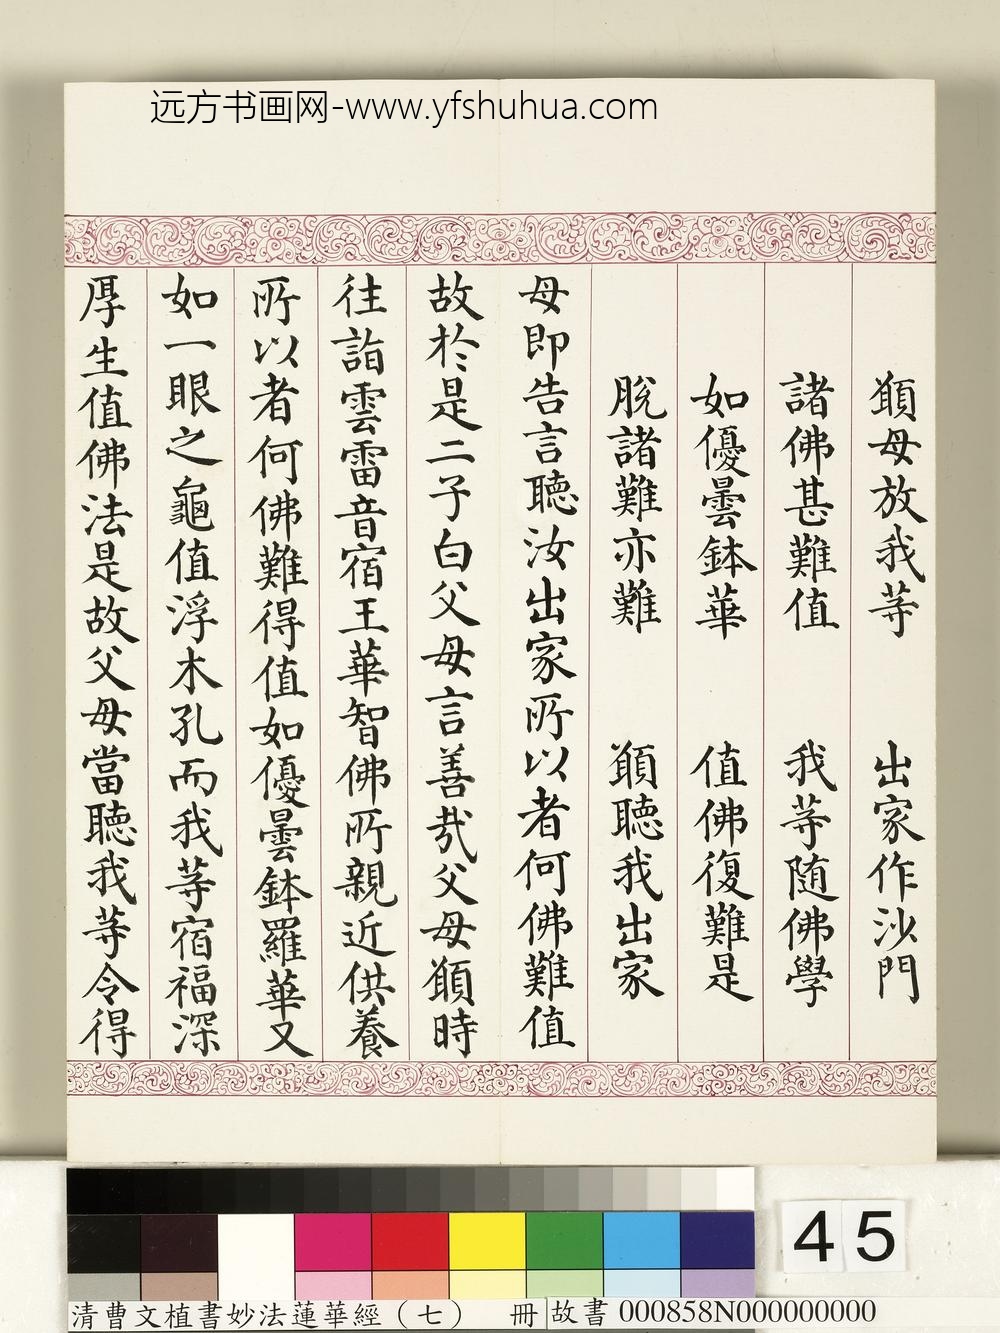 远方书画网-www.yfshuhua.com
願母放我等　出家作沙門
諸佛甚難值　我等随佛學
如優曇鉢華　值佛復難是
脫諸難亦難　願聽我出家
母即告言聽汝出家所以者何佛難值
故於是二子白父母言善哉父母願時
往詣雲雷音宿王華智佛所親近供養
所以者何佛難得值如優曇鉢羅華又
如一眼之龜值浮木孔而我等宿福深
厚生值佛法是故父母當聽我等令得
45
清曹文植書妙法蓮華經（七）　冊
故書 000858N000000000